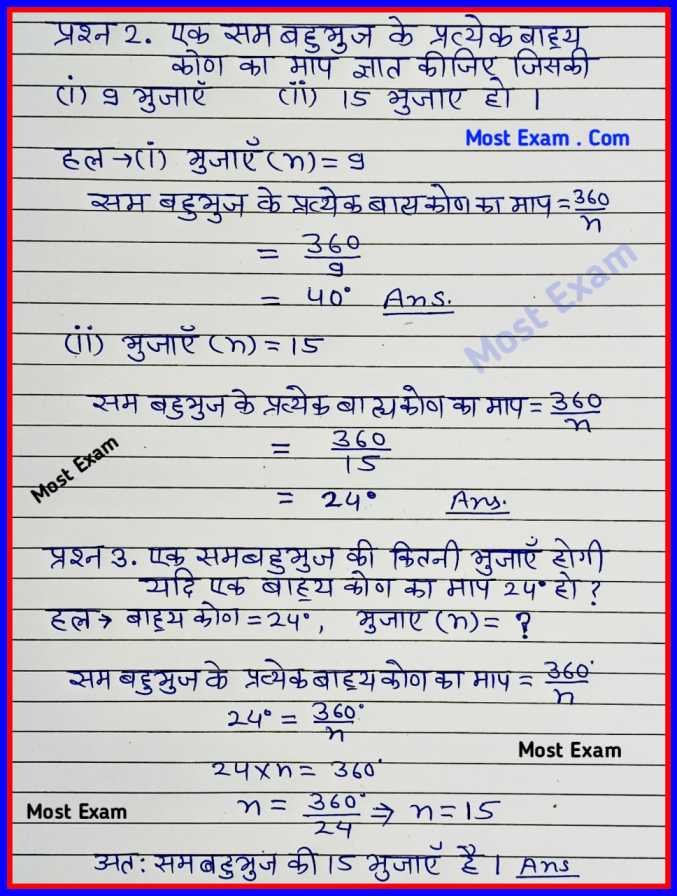 प्रश्न 2. एक सम बहुभुज के प्रत्येक बाह्य
कोण का माप ज्ञात कीजिए जिसकी
(i) 9 भुजाएँ (ii) 15 भुजाए हो ।
Most Exam . Com
हल → (i) भुजाएँ (n) = 9
सम बहुभुज के प्रत्येक बाह्य कोण का माप = 360/n
= 360/9
= 40° Ans.
Most Exam
(ii) भुजाएँ (n) = 15
सम बहुभुज के प्रत्येक बाह्य कोण का माप = 360/n
= 360/15
Most Exam
= 24° Ans.
प्रश्न 3. एक समबहुभुज की कितनी भुजाएँ होगी
यदि एक बाह्य कोण का माप 24° हो ?
हल → बाह्य कोण = 24°, भुजाए (n) = ?
सम बहुभुज के प्रत्येक बाह्य कोण का माप = 360°/n
24° = 360°/n
Most Exam
24 x n = 360°
Most Exam
n = 360°/24 ⇒ n = 15
अतः समबहुभुज की 15 भुजाएँ है । Ans